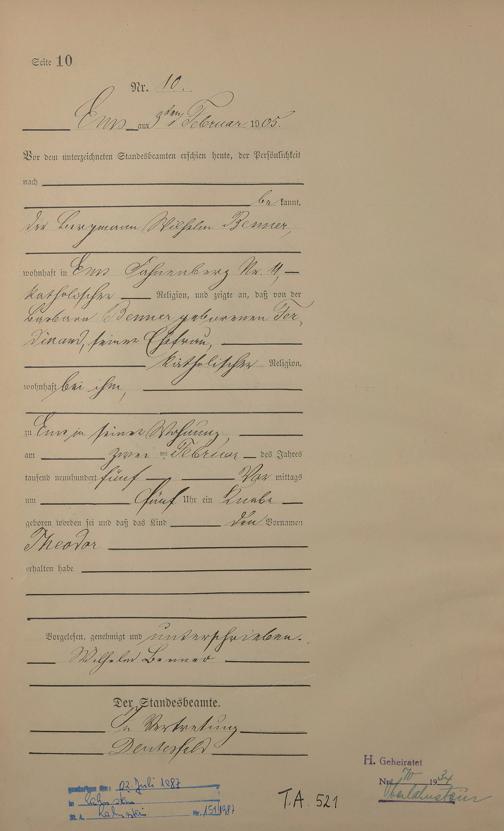 Seite 10
Nr. 10.
Ems am 9ten Februar 1905.
Vor dem unterzeichneten Standesbeamten erschien heute, der Persönlichkeit
nach
bekannt,
der Bergmann Wilhelm Benner,
wohnhaft in Ems Nr. 11,
katholischer Religion, und zeigte an, daß von der
Barbara Benner geborenen Fer-
dinand, seiner Ehefrau,
katholischer Religion,
wohnhaft bei ihm,
zu Ems in seiner Wohnung,
am zwei ten Februar des Jahres
tausend neunhundert fünf Vor mittags
um fünf Uhr ein Knabe
geboren worden sei und daß das Kind den Vornamen
Theodor
erhalten habe
Vorgelesen, genehmigt und unterschrieben.
Wilhelm Benner
Der Standesbeamte.
In Vertretung
gestorben am: 02. Juli 1987
in Lahnstein
St. A. Lahnstein Nr. 151/1987
T.A. 521
H. Geheiratet
Nr. 70 1934
Oberlahnstein